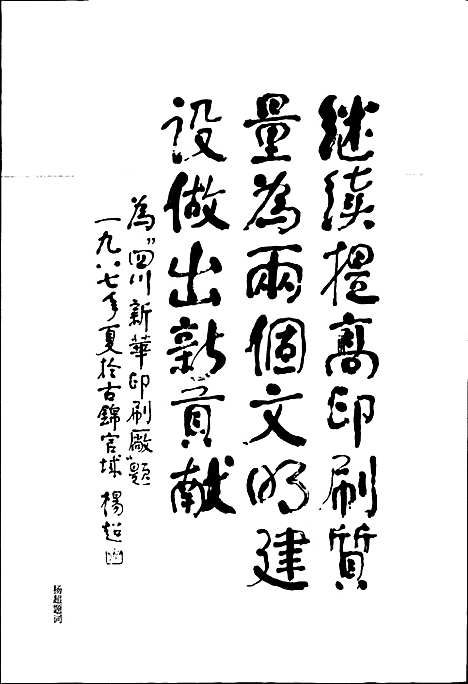 继续提高印刷质
量為兩個文明建
设做出新贡献
為"四川新華印刷廠"题
一九八七年夏於古錦官城 楊超
杨超题词